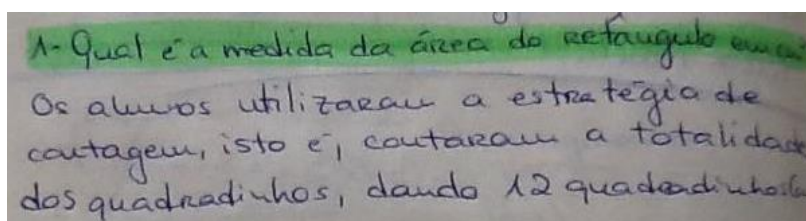 1- Qual é a medida da área do retângulo em
Os alunos utilizaram a estratégia de
contagem, isto é, contaram a totalidade
dos quadradinhos, dando 12 quadradinhos